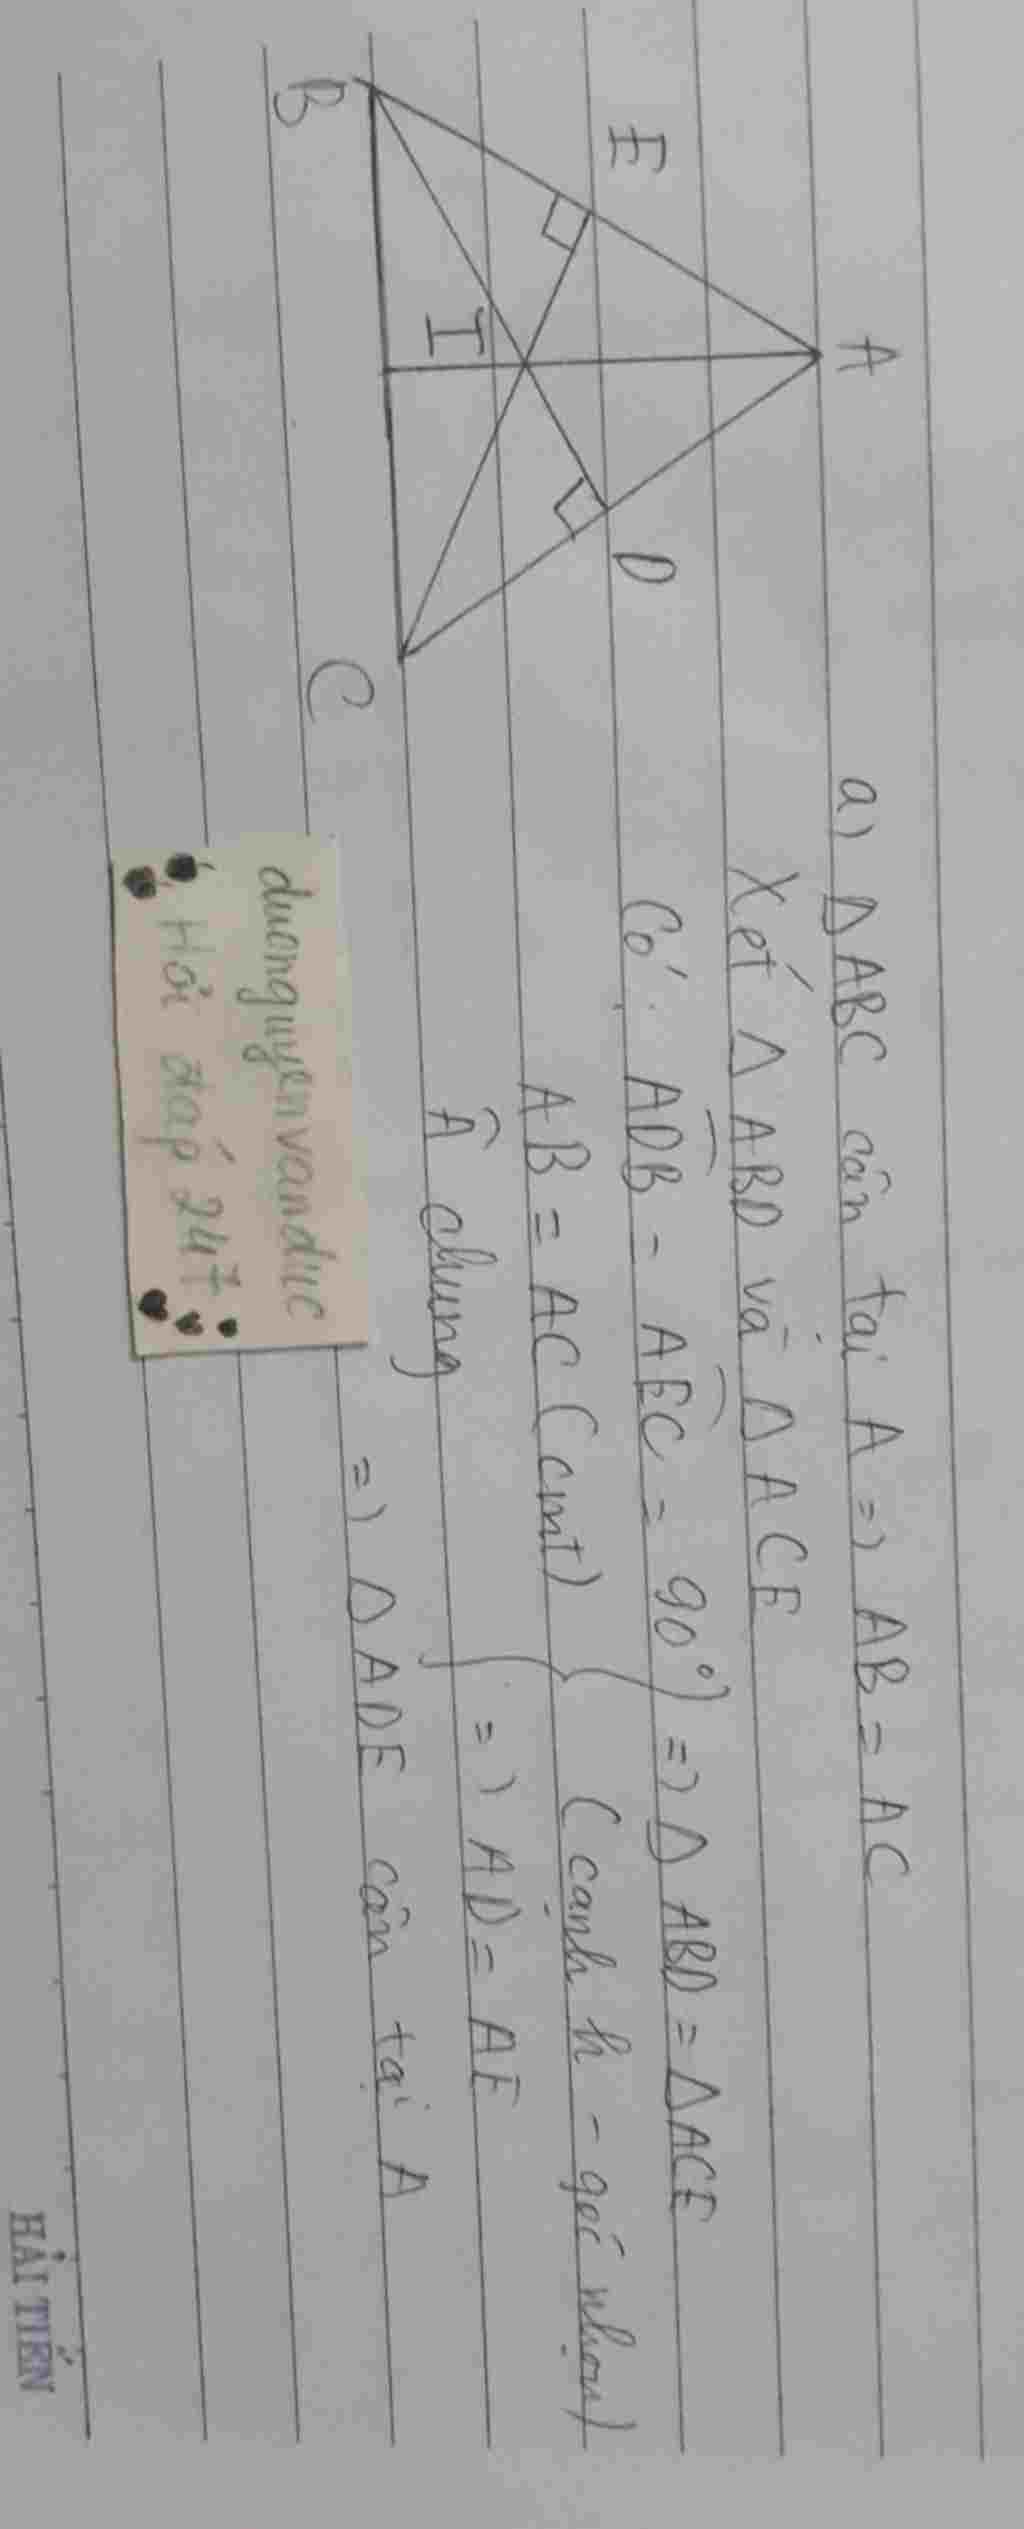 A
E
D
I
B
C
a) Δ ABC cân tại A => AB = AC
Xét Δ ABD và Δ ACE
Có: ADB = AEC = 90°
=> Δ ABD = Δ ACE
AB = AC (cmt)
(cạnh h - góc nhọn)
Â chung
=> AD = AE
=> Δ ADE cân tại A
duongnguyenvanduc
Hỏi đáp 247
HẢI TIẾN